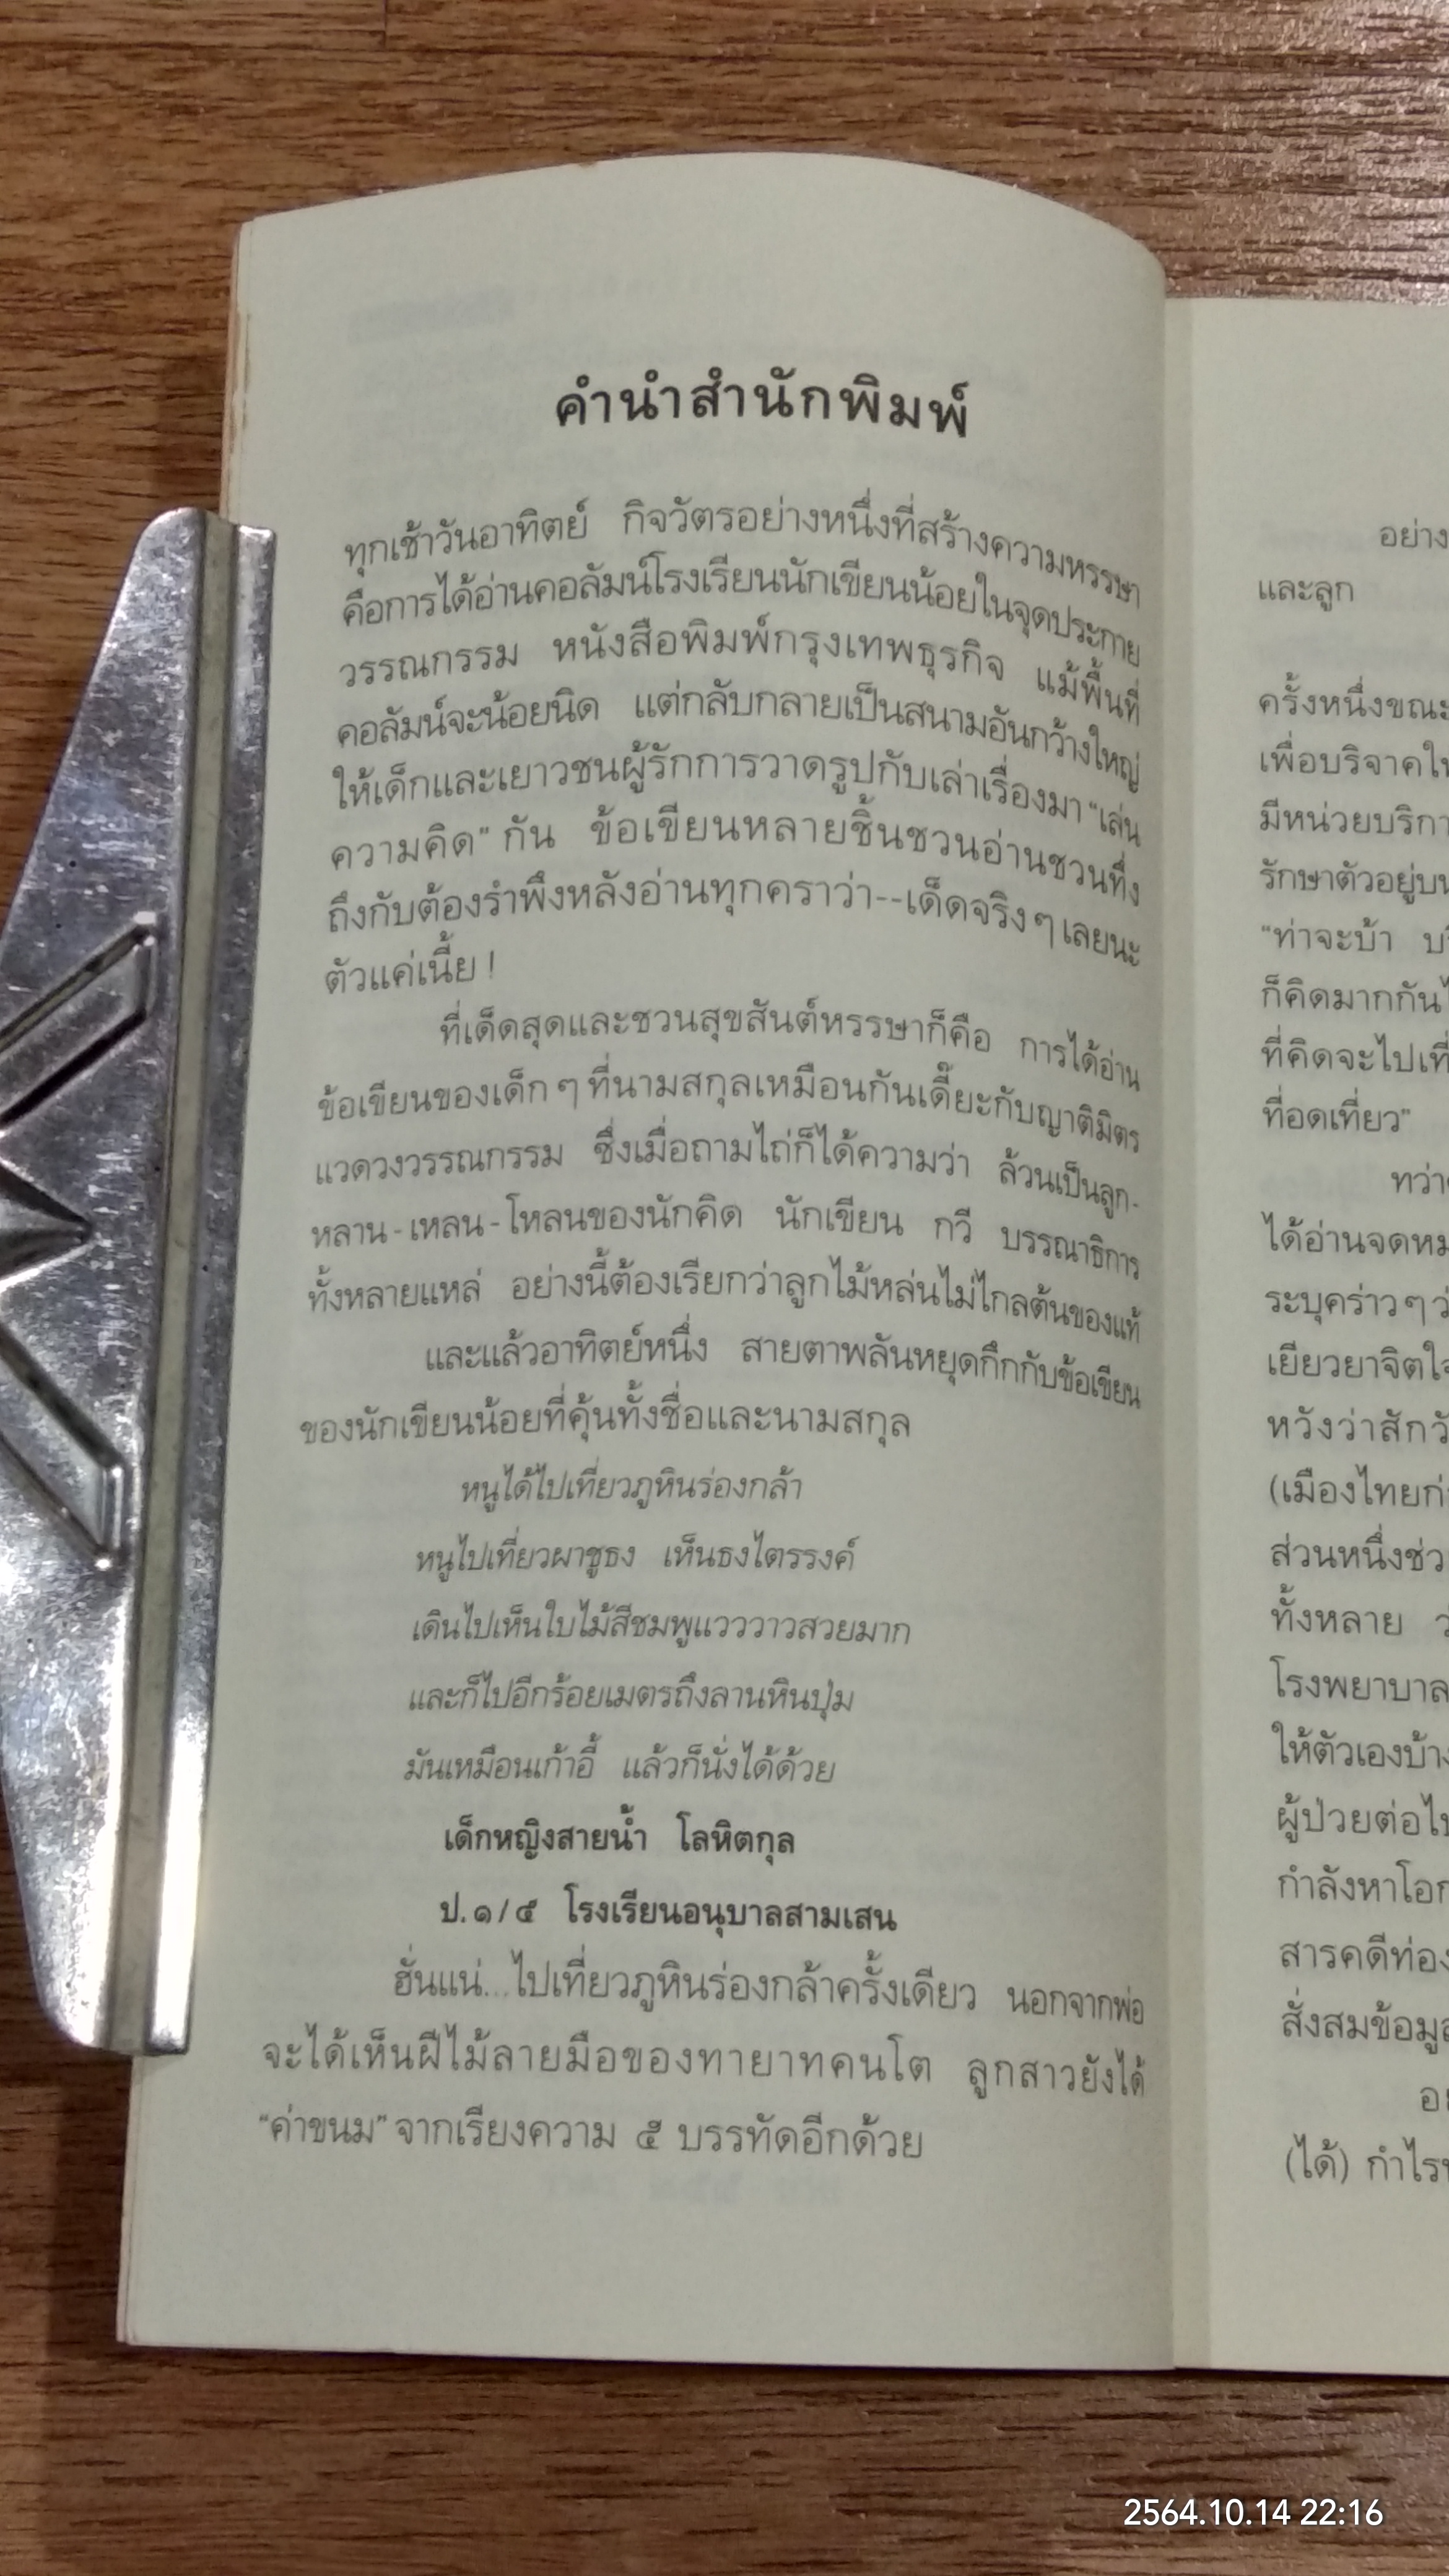 คำนำสำนักพิมพ์
ทุกเช้าวันอาทิตย์ กิจวัตรอย่างหนึ่งที่สร้างความหรรษา
คือการได้อ่านคอลัมน์โรงเรียนนักเขียนน้อยในจุดประกาย
วรรณกรรม หนังสือพิมพ์กรุงเทพธุรกิจ แม้พื้นที่
คอลัมน์จะน้อยนิด แต่กลับกลายเป็นสนามอันกว้างใหญ่
ให้เด็กและเยาวชนผู้รักการวาดรูปกับเล่าเรื่องมา "เล่น
ความคิด" กัน ข้อเขียนหลายชิ้นชวนอ่านชวนทึ่ง
ถึงกับต้องรำพึงหลังอ่านทุกคราว่า--เด็ดจริงๆ เลยนะ
ตัวแค่เนี้ย !
ที่เด็ดสุดและชวนสุขสันต์หรรษาก็คือ การได้อ่าน
ข้อเขียนของเด็กๆ ที่นามสกุลเหมือนกันเดี๊ยะกับญาติมิตร
แวดวงวรรณกรรม ซึ่งเมื่อถามไถ่ก็ได้ความว่า ล้วนเป็นลูก-
หลาน-เหลน-โหลนของนักคิด นักเขียน กวี บรรณาธิการ
ทั้งหลายแหล่ อย่างนี้ต้องเรียกว่าลูกไม้หล่นไม่ไกลต้นของแท้
และแล้วอาทิตย์หนึ่ง สายตาพลันหยุดกึกกับข้อเขียน
ของนักเขียนน้อยที่คุ้นทั้งชื่อและนามสกุล
หนูได้ไปเที่ยวภูหินร่องกล้า
หนูไปเที่ยวผาชูธง เห็นธงไตรรงค์
เดินไปเห็นใบไม้สีชมพูแวววาวสวยมาก
และก็ไปอีกร้อยเมตรถึงลานหินปุ่ม
มันเหมือนเก้าอี้ แล้วก็นั่งได้ด้วย
เด็กหญิงสายน้ำ โลหิตกุล
ป.๑/๕ โรงเรียนอนุบาลสามเสน
ฮั่นแน่...ไปเที่ยวภูหินร่องกล้าครั้งเดียว นอกจากพ่อ
จะได้เห็นฝีไม้ลายมือของทายาทคนโต ลูกสาวยังได้
"ค่าขนม" จากเรียงความ ๕ บรรทัดอีกด้วย
อย่าง
และลูก
ครั้งหนึ่งขณะ
เพื่อบริจาค
มีหน่วยบริกา
รักษาตัวอยู่บน
"ท่าจะบ้า
ก็คิดมากกัน
ที่คิดจะไปเที่
ที่อดเที่ยว"
ทว่า
ได้อ่านจดหม
ระบุคร่าวๆ ว่
เยียวยาจิตใจ
หวังว่าสักวั
(เมืองไทยก่
ส่วนหนึ่งช่ว
ทั้งหลาย
โรงพยาบาล
ให้ตัวเองบ้าง
ผู้ป่วยต่อไป
กำลังหาโอก
สารคดีท่อง
สั่งสมข้อมูล
(ได้) กำไร
2564.10.14 22:16